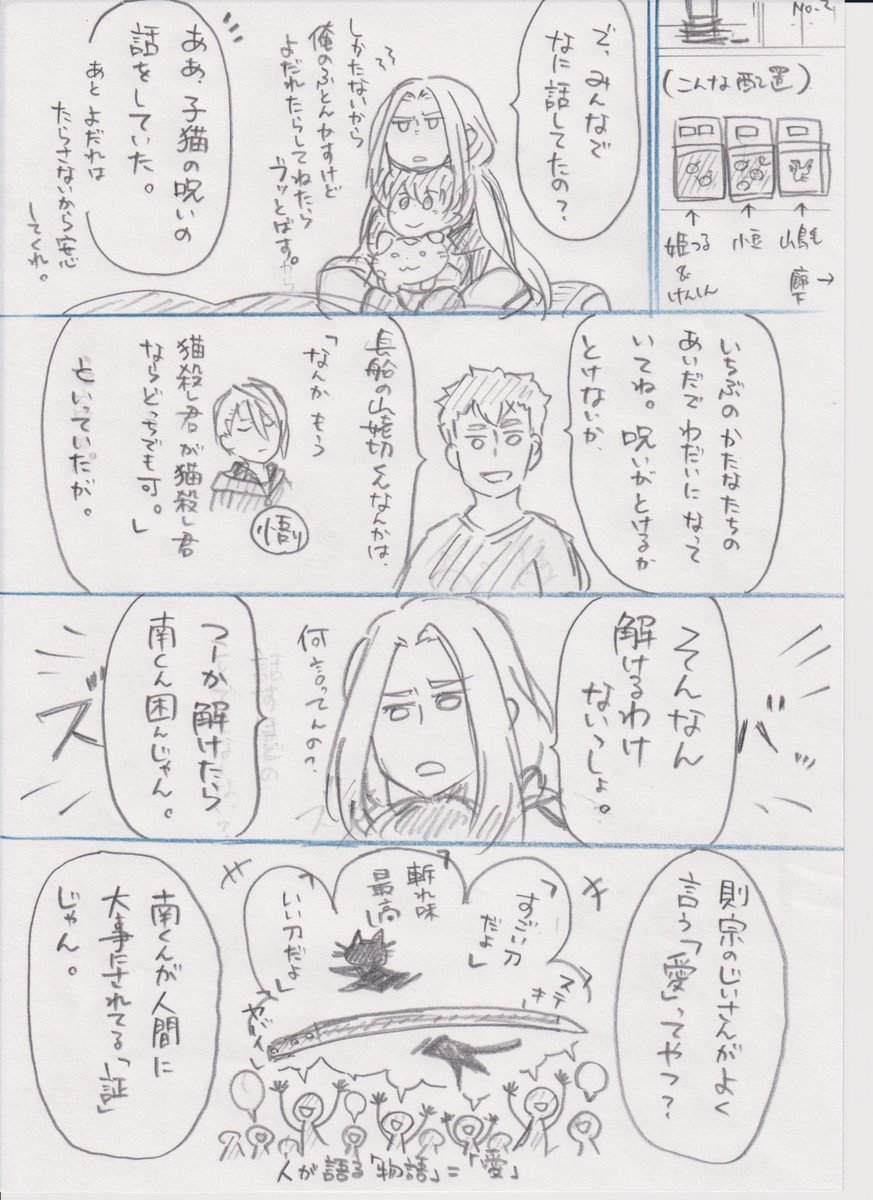 No.2
(こんな配置)
姫つる
&
けんしん
小豆
山鳥毛
廊下→
で、みんなで
なに話してたの?
しかたないから
俺のふとんかすけど
よだれたらしてねたら
ブッとばす。から
ああ、子猫の呪いの
話をしていた。
あと よだれは
たらさないから安心
してくれ。
いちぶの かたなたちの
あいだで わだいに なって
いてね。呪いがとけるか
とけないか
長船の山姥切くんなんかは、
「なんか もう
猫殺し君が猫殺し君
ならどっちでも可。」
といっていたが。
悟り
バ
そんなん
解けるわけ
ないっしょ。
何言ってんの?
つーか解けたら
南くん困んじゃん。
ズ
則宗のじいさんがよく
言う「愛」ってやつ?
「すごい刀
だよ」
「斬れ味
最高」
「いい刀だよ」
ステキ
「やばい」
人が語る「物語」=「愛」
南くんが人間に
大事にされてる「証」
じゃん。